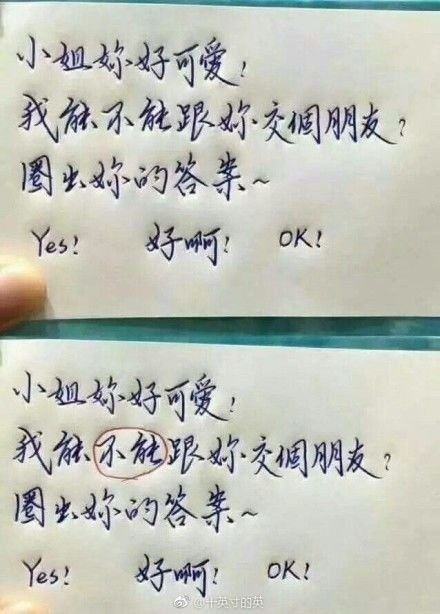 小姐妳好可愛!
我能不能跟妳交個朋友?
圈出妳的答案~
Yes! 好啊! OK!
小姐妳好可愛!
我能不能跟妳交個朋友?
圈出妳的答案~
Yes! 好啊! OK!
@十英寸的英